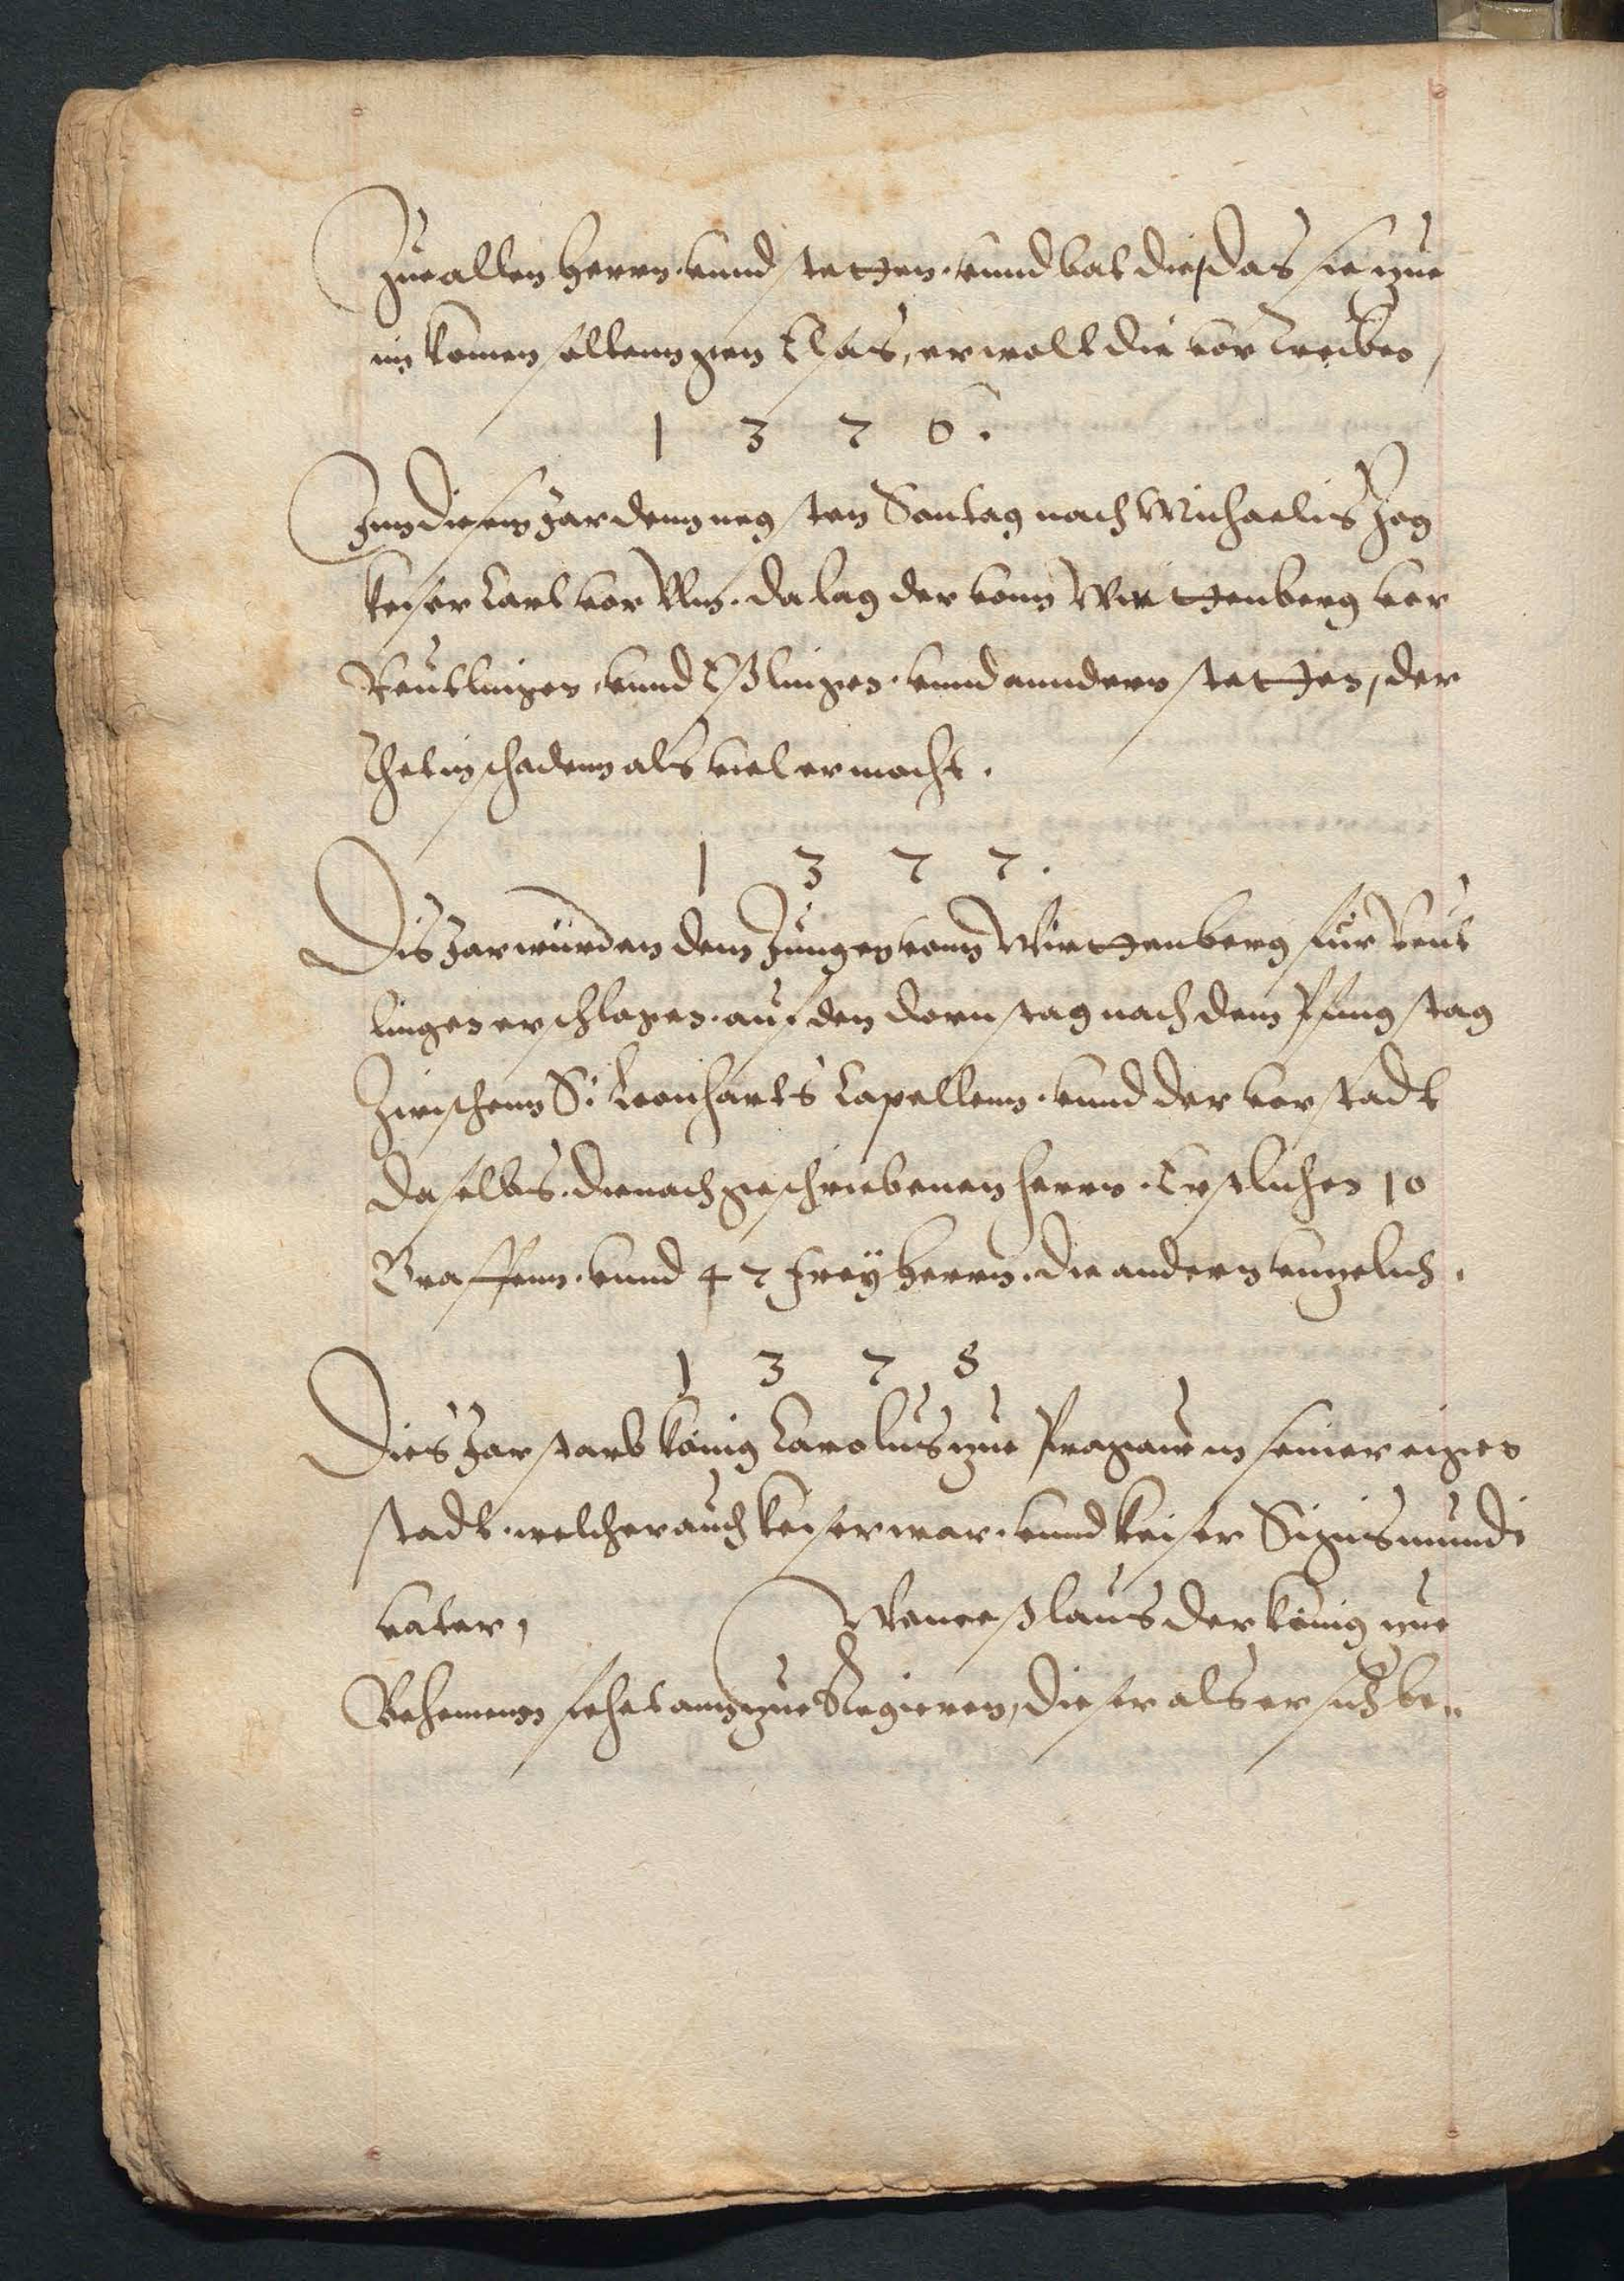 Zue allen herrn. vnnd stetten. vnnd bat die, das sie zue
im komen soltenn gen Elsas, er wolt die vertreiben,
1 3 7 6.
Inn diesem Jar dem negsten Sontag nach Michaelis Zog
keiser Carl vor Vlm. da lag der vonn Wirttenberg vor
Reutlingen, vnnd Eßlingen. vnnd anndern stetten, der
thet in schadenn als viel er mocht.
1 3 7 7.
Dis Jar würden dem Jungen vonn Wirttenberg für Reut
lingen erschlagen. auf den dornstag nach dem Pfingstag
Zwischenn S: Leonharts Capellenn. vnnd der vorstadt
daselbs. die nach geschriebenen herrn. Erstlichen 10
Graffenn. vnnd 47 freyherrn. die andern vngelich.
1 3 7 8
Dies Jar starb könig Carolus zue Prag auch in seiner eigen
stadt. welcher auch keiser war. vnnd keiser Sigismundi
vater, Wenceßlaus der könig zue
Behemenn fehet ann zue Regieren, dieser als er sich be„